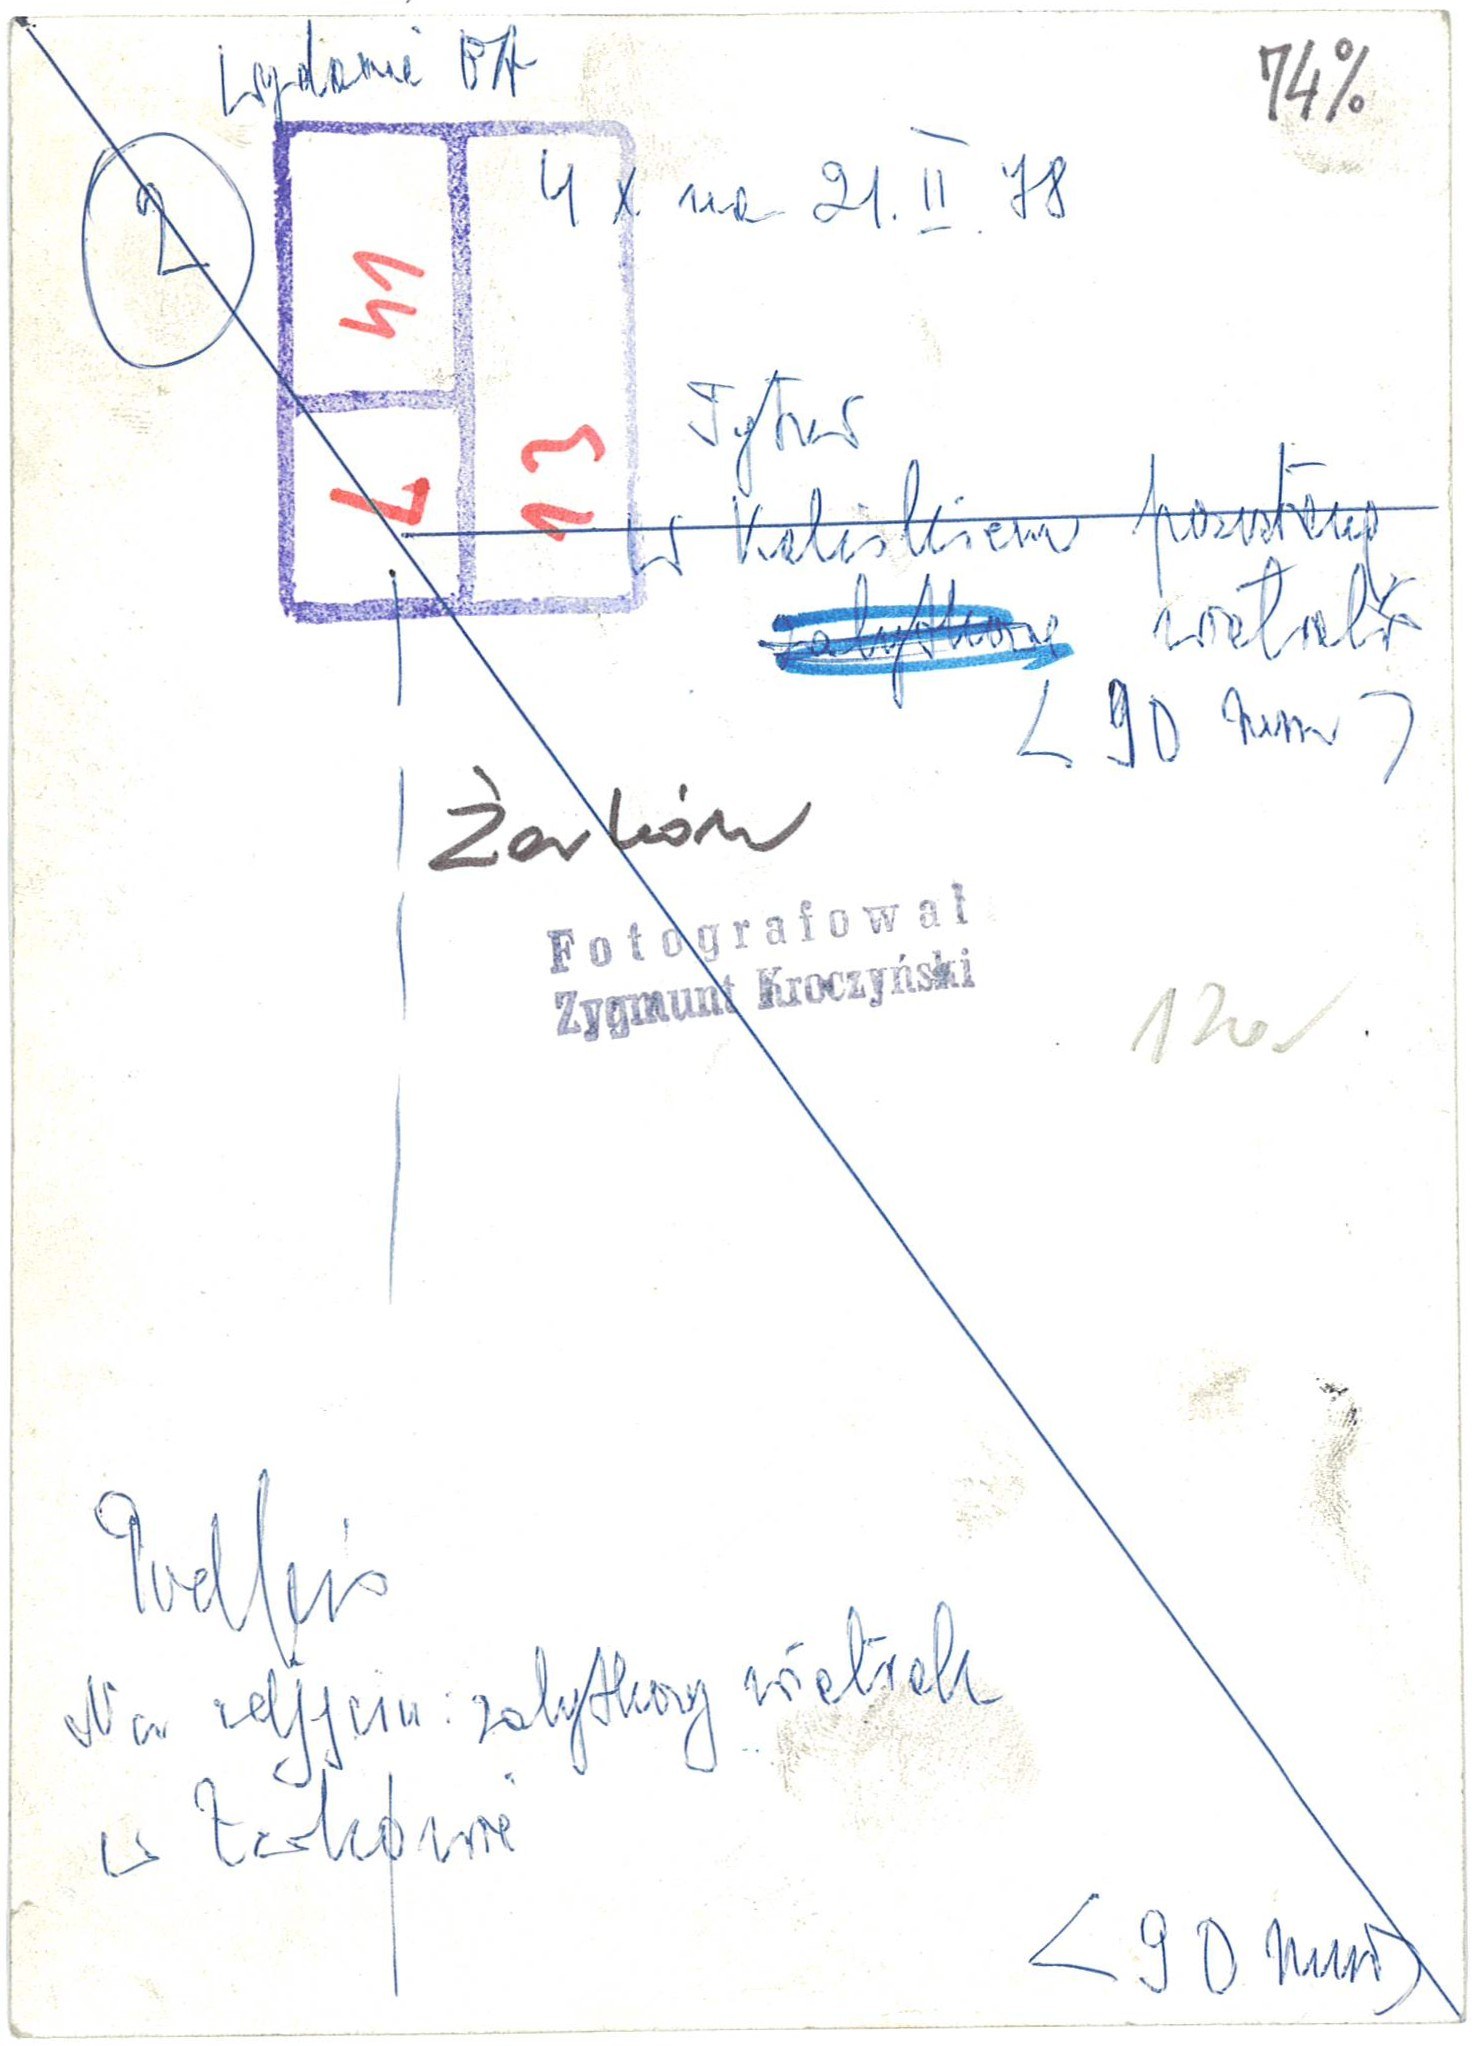 Wydanie BA
74%
2
4 x na 21. II 78
Tytuł
w Kaliskiem pozostało
zabytkowe wiatraki
< 90 mm >
Żarków
Fotografował
Zygmunt Kroczyński
Podpis
Na zdjęciu: zabytkowy wiatrak
w Żarkowie
< 90 mm >